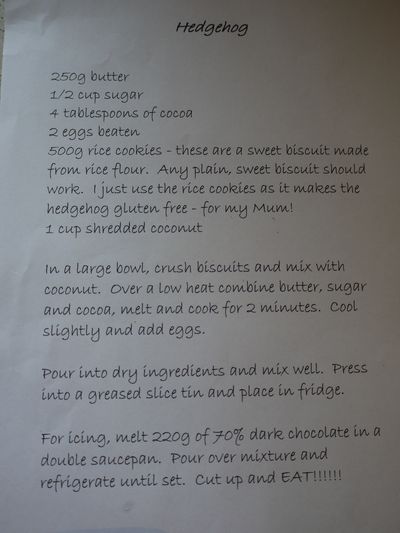 Hedgehog
250g butter
1/2 cup sugar
4 tablespoons of cocoa
2 eggs beaten
500g rice cookies - these are a sweet biscuit made
from rice flour. Any plain, sweet biscuit should
work. I just use the rice cookies as it makes the
hedgehog gluten free - for my Mum!
1 cup shredded coconut
In a large bowl, crush biscuits and mix with
coconut. Over a low heat combine butter, sugar
and cocoa, melt and cook for 2 minutes. Cool
slightly and add eggs.
Pour into dry ingredients and mix well. Press
into a greased slice tin and place in fridge.
For icing, melt 220g of 70% dark chocolate in a
double saucepan. Pour over mixture and
refrigerate until set. Cut up and EAT!!!!!!